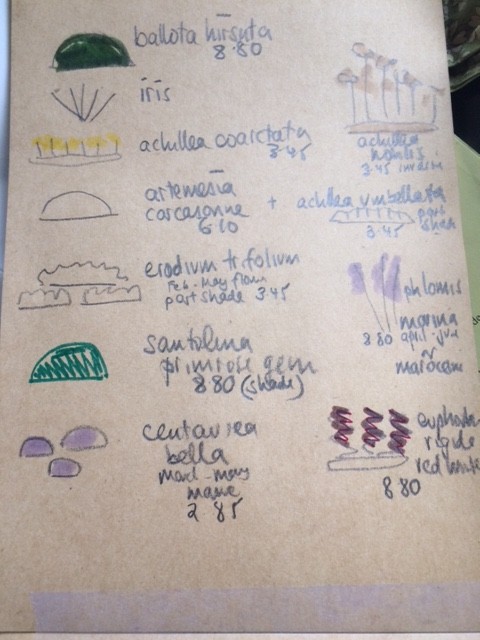 ballota hirsuta
8.80
iris
achillea coarctata
3.45
achillea
nobilis
3.45
artemesia
carcasonne
6.10
+ achillea umbellata
part
shade
3.45
erodium trifolium
Feb - May flower
part shade 3.45
phlomis
8.80 april - june
santolina
primrose gem
8.80 (shade)
centaurea
bella
mauve
2.85
euphorbia
rigida
red
8.80